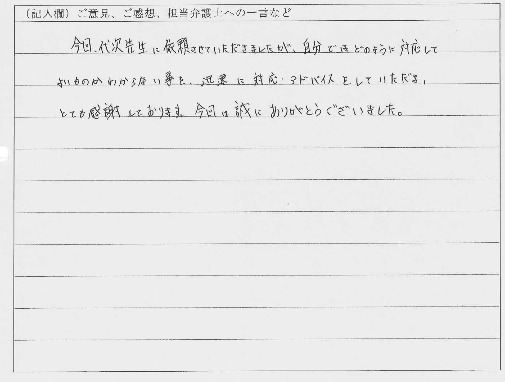 （記入欄）ご意見、ご感想、担当弁護士への一言など
今回、代次先生に依頼させていただきましたが、自分ではどのように対応して
よいものかわからない事を、迅速に対応・アドバイスをしていただき、
とても感謝しております。今回は誠にありがとうございました。